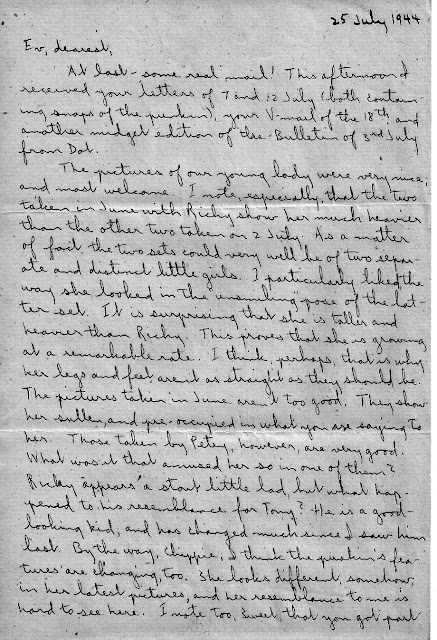 25 July 1944
Ev, dearest,
At last - some real mail! This afternoon I
received your letters of 7 and 12 July (both contain-
ing snaps of the punkin), your V-mail of the 18th and
another midget edition of the Bulletin of 3rd July
from Dot.
The pictures of our young lady were very nice,
and most welcome. I note, especially, that the two
taken in June with Richy show her much heavier
than the other two taken on 2 July. As a matter
of fact, the two sets could very well be of two separ-
ate and distinct little girls. I particularly liked the
way she looked in the unsmiling pose of the lat-
ter set. It is surprising that she is taller and
heavier than Richy. This proves that she is growing
at a remarkable rate. I think, perhaps, that is why
her legs and feet aren't as straight as they should be.
The pictures taken in June aren't too good. They show
her sullen, and pre-occupied in what you are saying to
her. Those taken by Petey, however, are very good!
What was it that amused her so in one of them?
Richy appears a smart little lad, but what hap-
pened to his resemblance for Tony? He is a good-
looking kid, and has changed much since I saw him
last. By the way, Chippie, I think the punkin's fea-
tures are changing, too. She looks different, somehow,
in her latest pictures, and her resemblance to me is
hard to see here. I note too, Sweet, that you got part